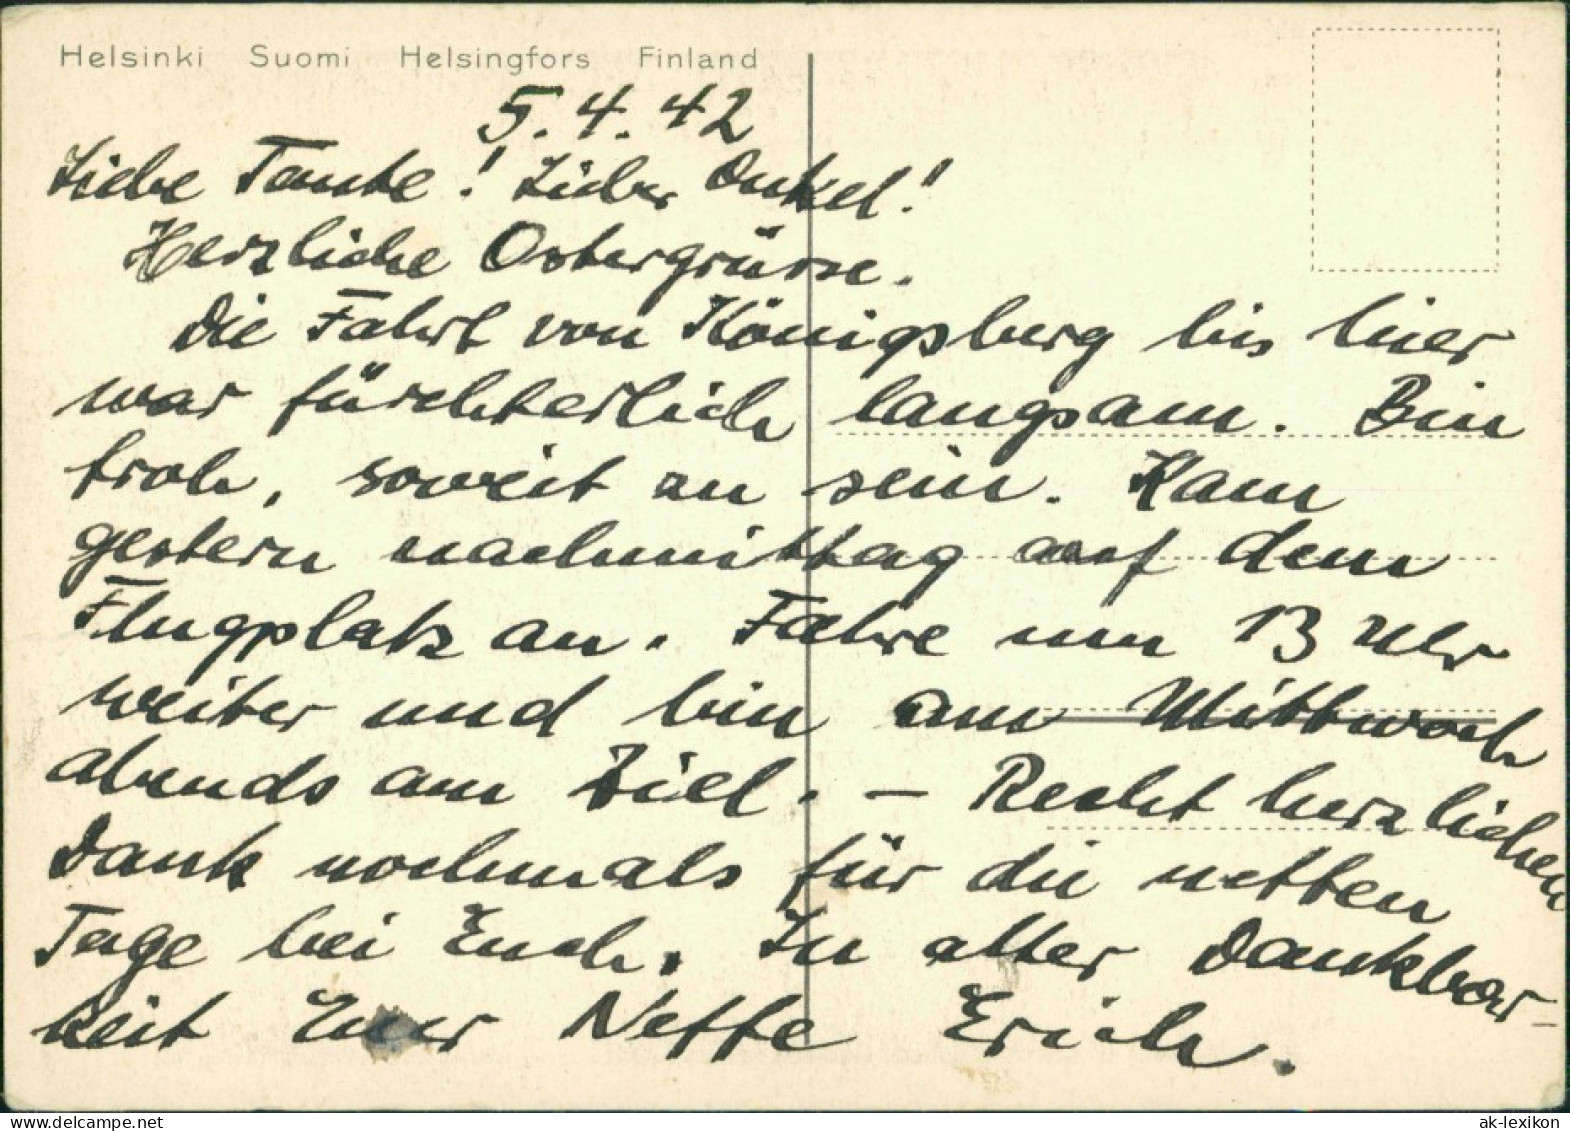 Helsinki Suomi Helsingfors Finland
5.4.42
Liebe Tante! Lieber Onkel!
Herzliche Ostergrüsse.
Die Fahrt von Königsberg bis hier
war fürchterlich langsam. Bin
froh, soweit zu sein. Kam
gestern nachmittag auf dem
Flugplatz an. Fahre um 13 Uhr
weiter und bin am Mittwoch
abends am Ziel. – Recht herzlichen
Dank nochmals für die netten
Tage bei Euch. In alter Dankbar-
keit Euer Neffe Erich.
ak-lexikon